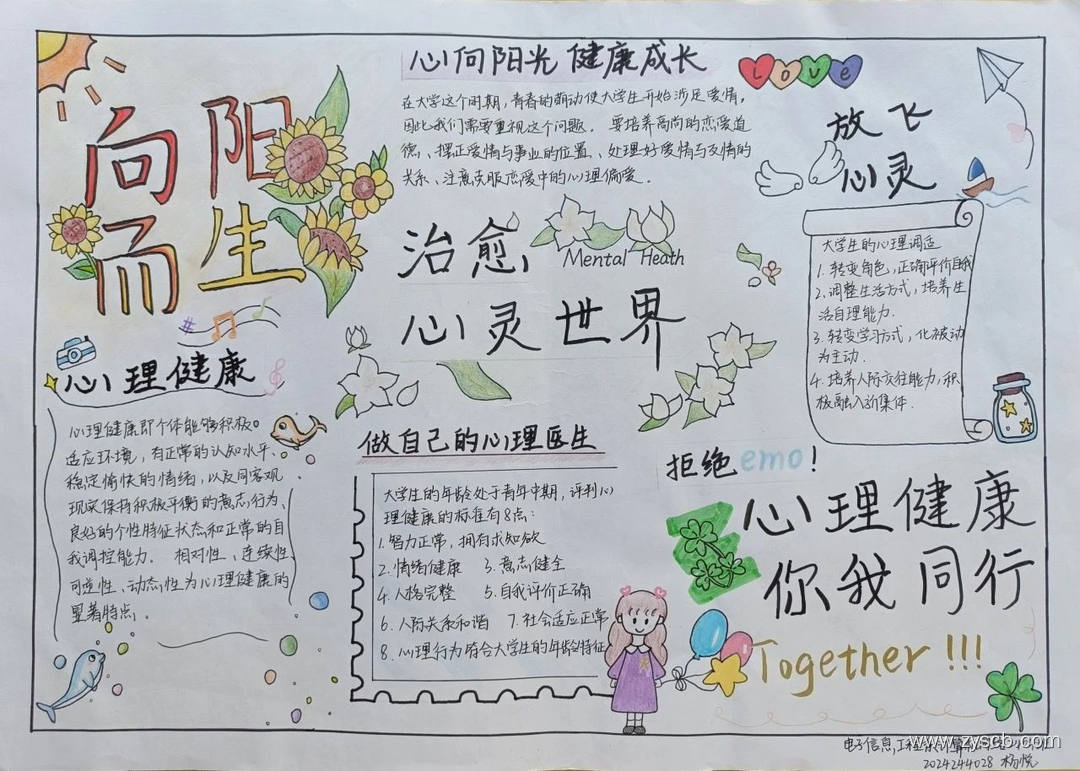 向阳
而生
心向阳光 健康成长
Love
在大学这个时期,青春的萌动使大学生开始涉足爱情,
因此我们需要重视这个问题。要培养高尚的恋爱道
德、摆正爱情与事业的位置、处理好爱情与友情的
关系、注意克服恋爱中的心理偏爱。
放飞
心灵
治愈,
Mental Heath
心灵世界
大学生的心理调适
1.转变角色,正确评价自我
2.调整生活方式,培养生
活自理能力.
3.转变学习方式,化被动
为主动.
4.培养人际交往能力,积
极融入新集体.
心理健康
心理健康即个体能够积极。
适应环境,有正常的认知水平、
稳定愉快的情绪,以及同客观
现实保持积极平衡的意志行为、
良好的个性特征状态和正常的自
我调控能力。相对性、连续性
可逆性、动态性为心理健康的
显著特点。
做自己的心理医生
大学生的年龄处于青年中期,评判心
理健康的标准有8点:
1.智力正常,拥有求知欲
2.情绪健康 3.意志健全
4.人格完整 5.自我评价正确
6.人际关系和谐 7.社会适应正常
8.心理行为符合大学生的年龄特征
拒绝emo!
心理健康
你我同行
Together!!!
电子信息工程系
www.zyscb.com
2024244028 杨悦